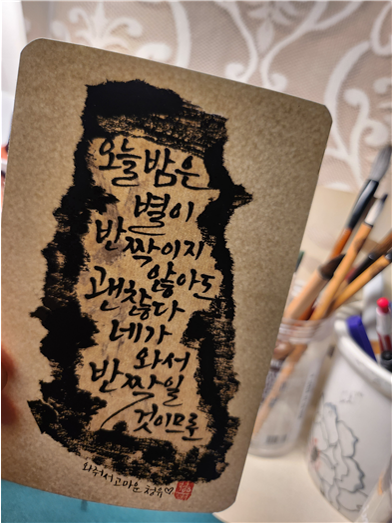 오늘밤은
별이
반짝이지
않아도
괜찮다
네가
와서
반짝일
것이므로
와주셔서고마운 청유♡